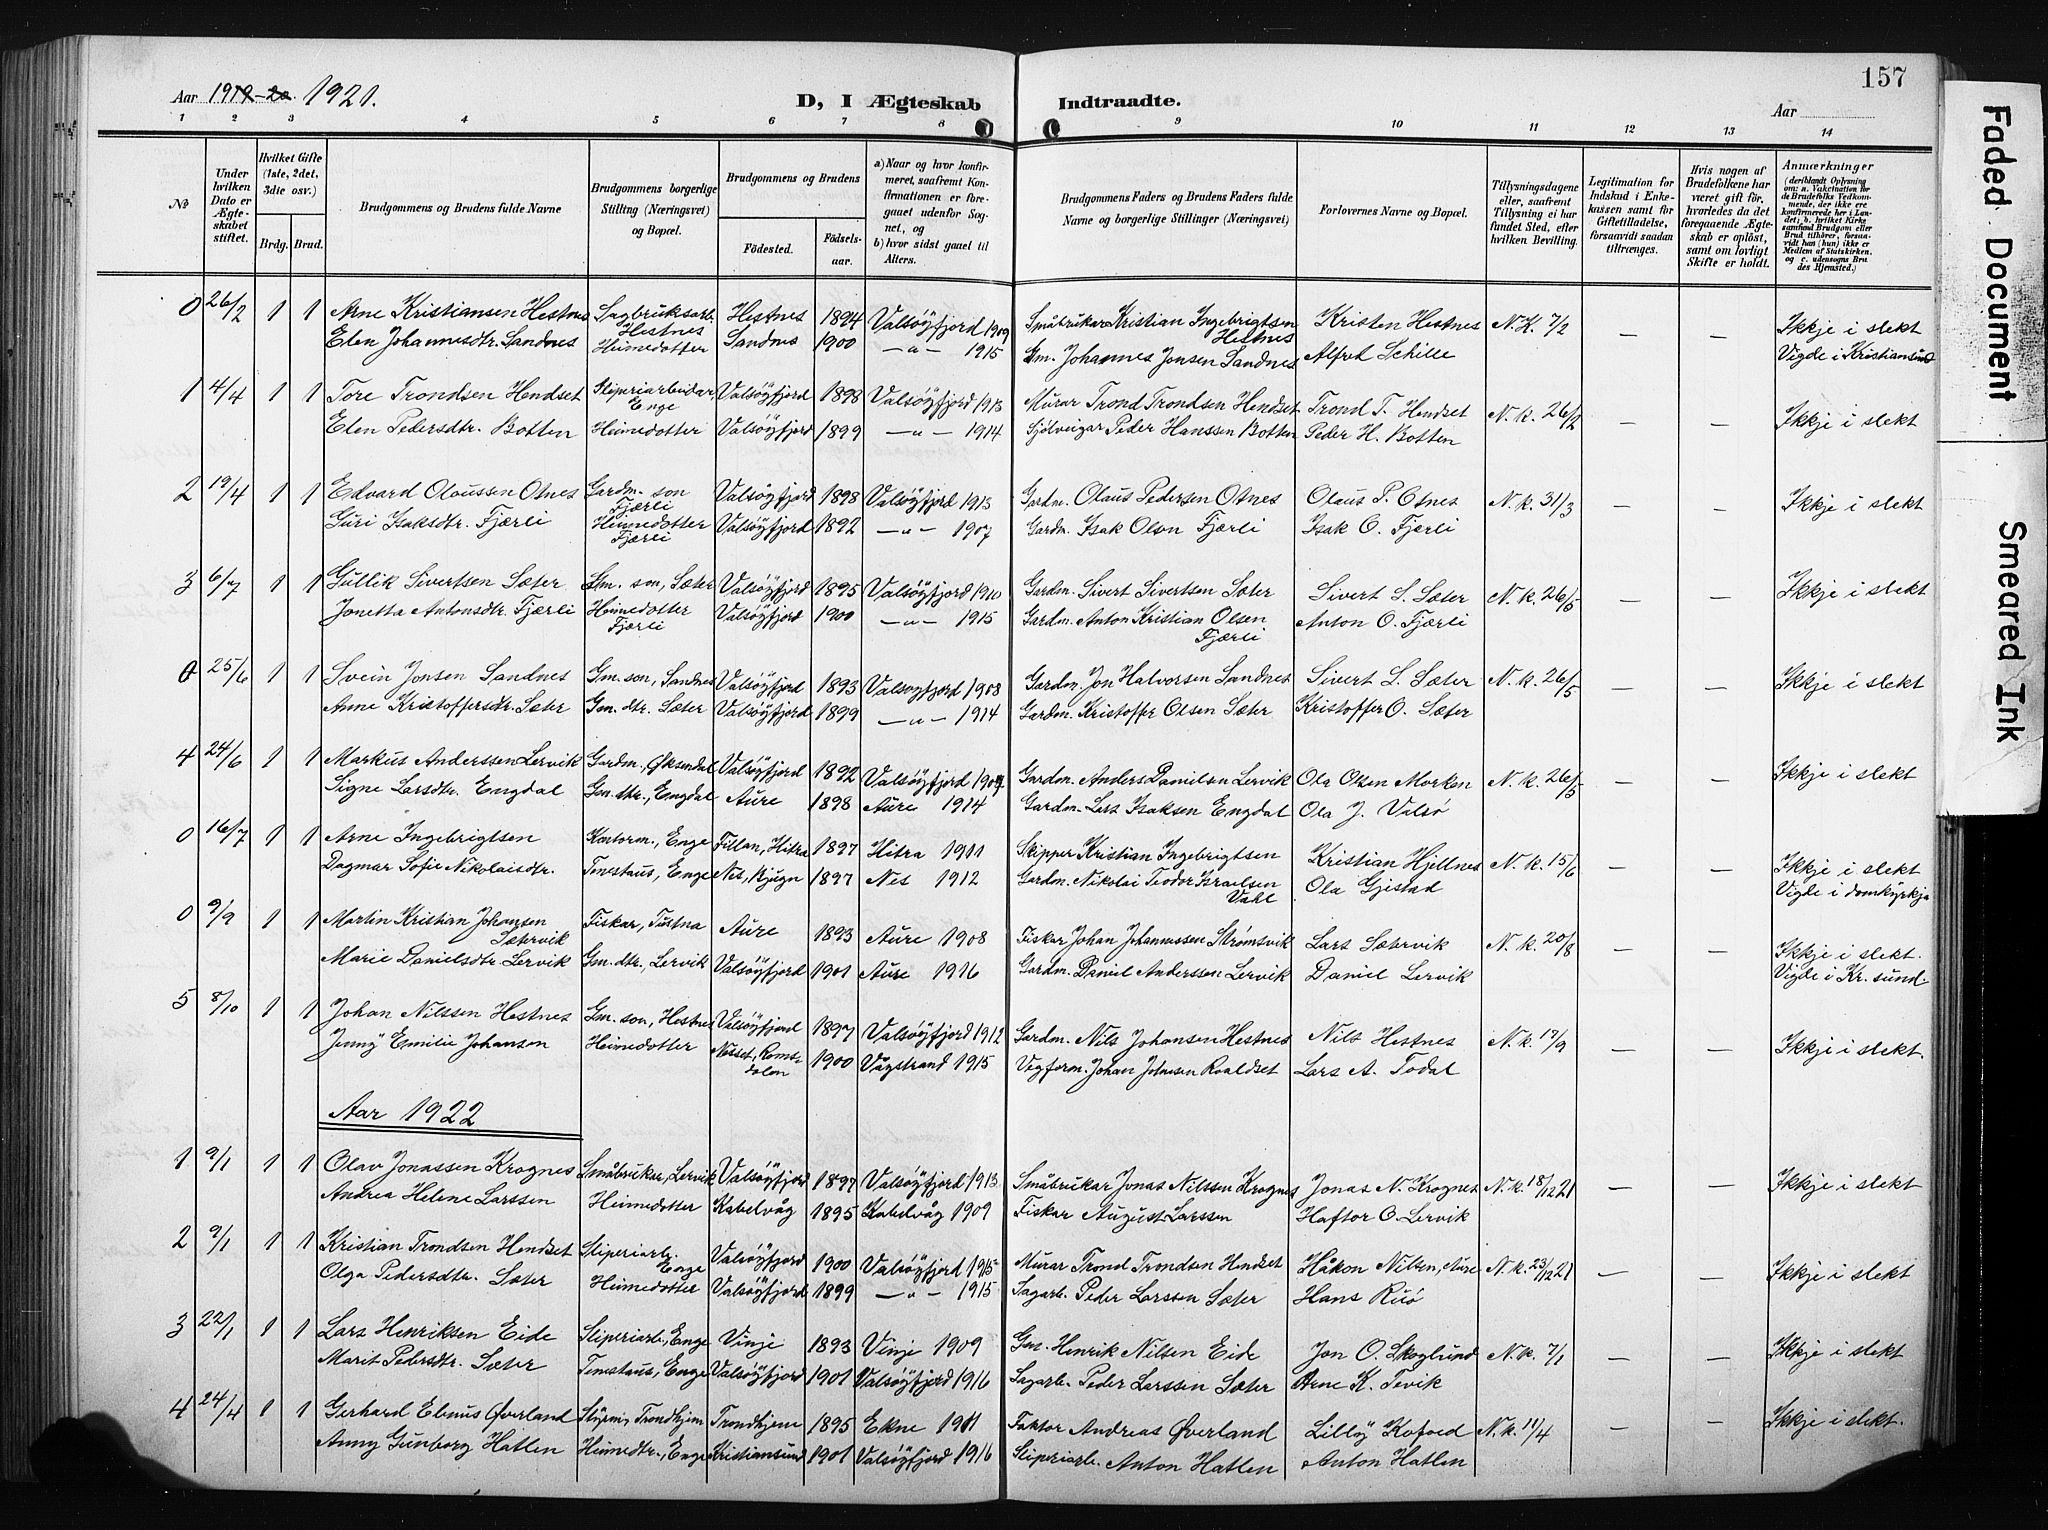 157
Aar 1919-20. 1921.
D, I Ægteskab Indtraadte.
Aar
1 2 3 4 5 6 7 8 9 10 11 12 13 14
No
Under hvilken Dato er Ægteskabet stiftet.
Hvilket Gifte (1ste, 2det, 3die osv.)
Brdg. Brud.
Brudgommens og Brudens fulde Navne
Brudgommens borgerlige Stilling (Næringsvei) og Bopæl.
Brudgommens og Brudens
Födested. Födselsaar.
a) Naar og hvor konfirmeret, saafremt Konfirmationen er foregaaet udenfor Sognet, og
b) hvor sidst gaaet til Alters.
Brudgommens Faders og Brudens Faders fulde Navne og borgerlige Stillinger (Næringsvei)
Forlovernes Navne og Bopæl.
Tillysningsdagene eller, saafremt Tillysning ei har fundet Sted, efter hvilken Bevilling.
Legitimation for Indskud i Enkekassen samt for Giftetilladelse, forsaavidt saadan tiltrænges.
Hvis nogen af Brudefolkene har været gift för, hvorledes da det foregaaende Ægteskab er oplöst, samt om lovligt Skifte er holdt.
Anmærkninger (deriblandt Oplysning om: a. Vakcination for de Brudefolks Vedkommende, der ikke ere konfirmerede her i Landet; b. hvilket Kirkesamfund Brudgom eller Brud tilhörer, forsaavidt han (hun) ikke er Medlem af Statskirken, og c. udensogns Brudes Hjemsted.)
0 26/2 1 1 Arne Kristiansen Hestnes Sagbruksarb. Hestnes Hestnes 1894 Valsöyfjord 1909 Småbrukar Kristian Ingebrigtsen Hestnes Kristen Hestnes N.K. 7/2 — — Ikkje i slekt
Elen Johannesdtr. Sandnes Heimedotter Sandnes 1900 —"— 1915 Gm. Johannes Jonsen Sandnes Alfred Schille Vigde i Kristiansund
1 4/4 1 1 Tore Trondsen Hendset Sliperiarbeidar, Enge Valsöyfjord 1898 Valsöyfjord 1913 Murar Trond Trondsen Hendset Trond T. Hendset N.k. 26/2 — — Ikkje i slekt
Elen Pedersdtr. Botten Heimedotter Valsöyfjord 1899 —"— 1914 Sjölveigar Peder Hanssen Botten Peder H. Botten
2 19/4 1 1 Edvard Olaussen Otnes Gardm. son Fjærli Valsöyfjord 1898 Valsöyfjord 1913 Gardm. Olaus Pedersen Otnes Olaus P. Otnes N.k. 31/3 — — Ikkje i slekt
Guri Isaksdtr. Fjærli Heimedotter Fjærli Valsöyfjord 1892 —"— 1907 Gardm. Isak Olsen Fjærli Isak O. Fjærli
3 6/7 1 1 Gullik Sivertsen Sæter Gm. son, Sæter Valsöyfjord 1895 Valsöyfjord 1910 Gardm. Sivert Sivertsen Sæter Sivert S. Sæter N.k. 26/5 — — Ikkje i slekt
Jonetta Antonsdtr. Fjærli Heimedotter Fjærli Valsöyfjord 1900 —"— 1915 Gardm. Anton Kristian Olsen Fjærli Anton O. Fjærli
0 25/6 1 1 Svein Jonsen Sandnes Gm. son, Sandnes Valsöyfjord 1893 Valsoyfjord 1908 Gardm. Jon Halvorsen Sandnes Sivert S. Sæter N.k. 26/5 — — Ikkje i slekt
Anne Kristoffersdtr. Sæter Gm. dtr. Sæter Valsöyfjord 1899 —"— 1914 Gardm. Kristoffer Olsen Sæter Kristoffer O. Sæter
4 24/6 1 1 Markus Anderssen Lervik Gardm., Øksendal Valsöyfjord 1892 Valsöyfjord 1907 Gardm. Anders Danielsen Lervik Ola Olsen Morken N.k. 26/5 — — Ikkje i slekt
Signe Larsdtr. Engdal Gm. dtr., Engdal Aure 1898 Aure 1914 Gardm. Lars Isaksen Engdal Ola J. Valsö
0 16/7 1 1 Arne Ingebrigtsen Kontorm., Enge Fillan, Hitra 1897 Hitra 1911 Skipper Kristian Ingebrigtsen Kristian Hjellnes N.k. 15/6 — — Ikkje i slekt
Dagmar Sofie Nikolaisdtr. Tenestaus, Enge Nes, Bjugn 1897 Nes 1912 Gardm. Nikolai Teodor Israelsen Vahl Ola Gjistad Vigde i domkyrkja
0 9/9 1 1 Martin Kristian Johansen Sætervik Fiskar, Tustna Aure 1893 Aure 1908 Fiskar Johan Johannessen Strømsvik Lars Sætervik N.k. 20/8 — — Ikkje i slekt.
Marie Danielsdtr. Lervik Gm. dtr., Lervik Valsöyfjord 1901 Aure 1916 Gardm. Daniel Anderssen Lervik Daniel Lervik Vigde i Kr. sund.
5 8/10 1 1 Johan Nilssen Hestnes Gm. son, Hestnes Valsöyfjord 1897 Valsöyfjord 1912 Gardm. Nils Johansen Hestnes Nils Hestnes N.k. 17/9 — — Ikkje i slekt.
Jenny Emilie Johansen Heimedotter Nesset, Romsdalen 1900 Vågstrand 1915 Vegform. Johan Johnsen Roaldset Lars A. Todal
Aar 1922
1 9/1 1 1 Olav Jonassen Krognes Småbrukar, Lervik Valsöyfjord 1897 Valsöyfjord 1913 Småbrukar Jonas Nilssen Krognes Jonas N. Krognes N.k. 18/12 21 — — Ikkje i slekt
Andrea Helene Larssen Heimedotter Kabelvåg 1895 Kabelvåg 1909 Fiskar August Larssen Haftor O. Lervik
2 9/1 1 1 Kristian Trondsen Hendset Sliperiarb. Enge Valsöyfjord 1900 Valsöyfjord 1915 Murar Trond Trondsen Hendset Håkon Nilsen, Aure N.k. 23/12 21 — — Ikkje i slekt
Olga Pedersdtr. Sæter Heimedotter Valsöyfjord 1899 —"— 1915 Sagarb. Peder Larssen Sæter Hans Ruö
3 22/1 1 1 Lars Henriksen Eide Sliperiarb., Enge Vinje 1893 Vinje 1909 Gm. Henrik Nilsen Eide Jon O. Skoglund N.k. 7/1 — — Ikkje i slekt
Marit Pedersdtr. Sæter Tenestaus, Enge Valsöyfjord 1901 Valsöyfjord 1916 Sagarb. Peder Larssen Sæter Arne K. Tevik
4 24/4 1 1 Gerhard Elenus Øverland Styrm., Trondhjem Trondhjem 1895 Ekne 1911 Faktor Andreas Øverland Lilly Kofoed N.k. 11/4 — — Ikkje i slekt.
Anny Gunborg Hatlen Heimedtr., Enge Kristiansund 1901 Valsöyfjord 1916 Sliperiarb. Anton Hatlen Anton Hatlen
Faded Document
Smeared Ink